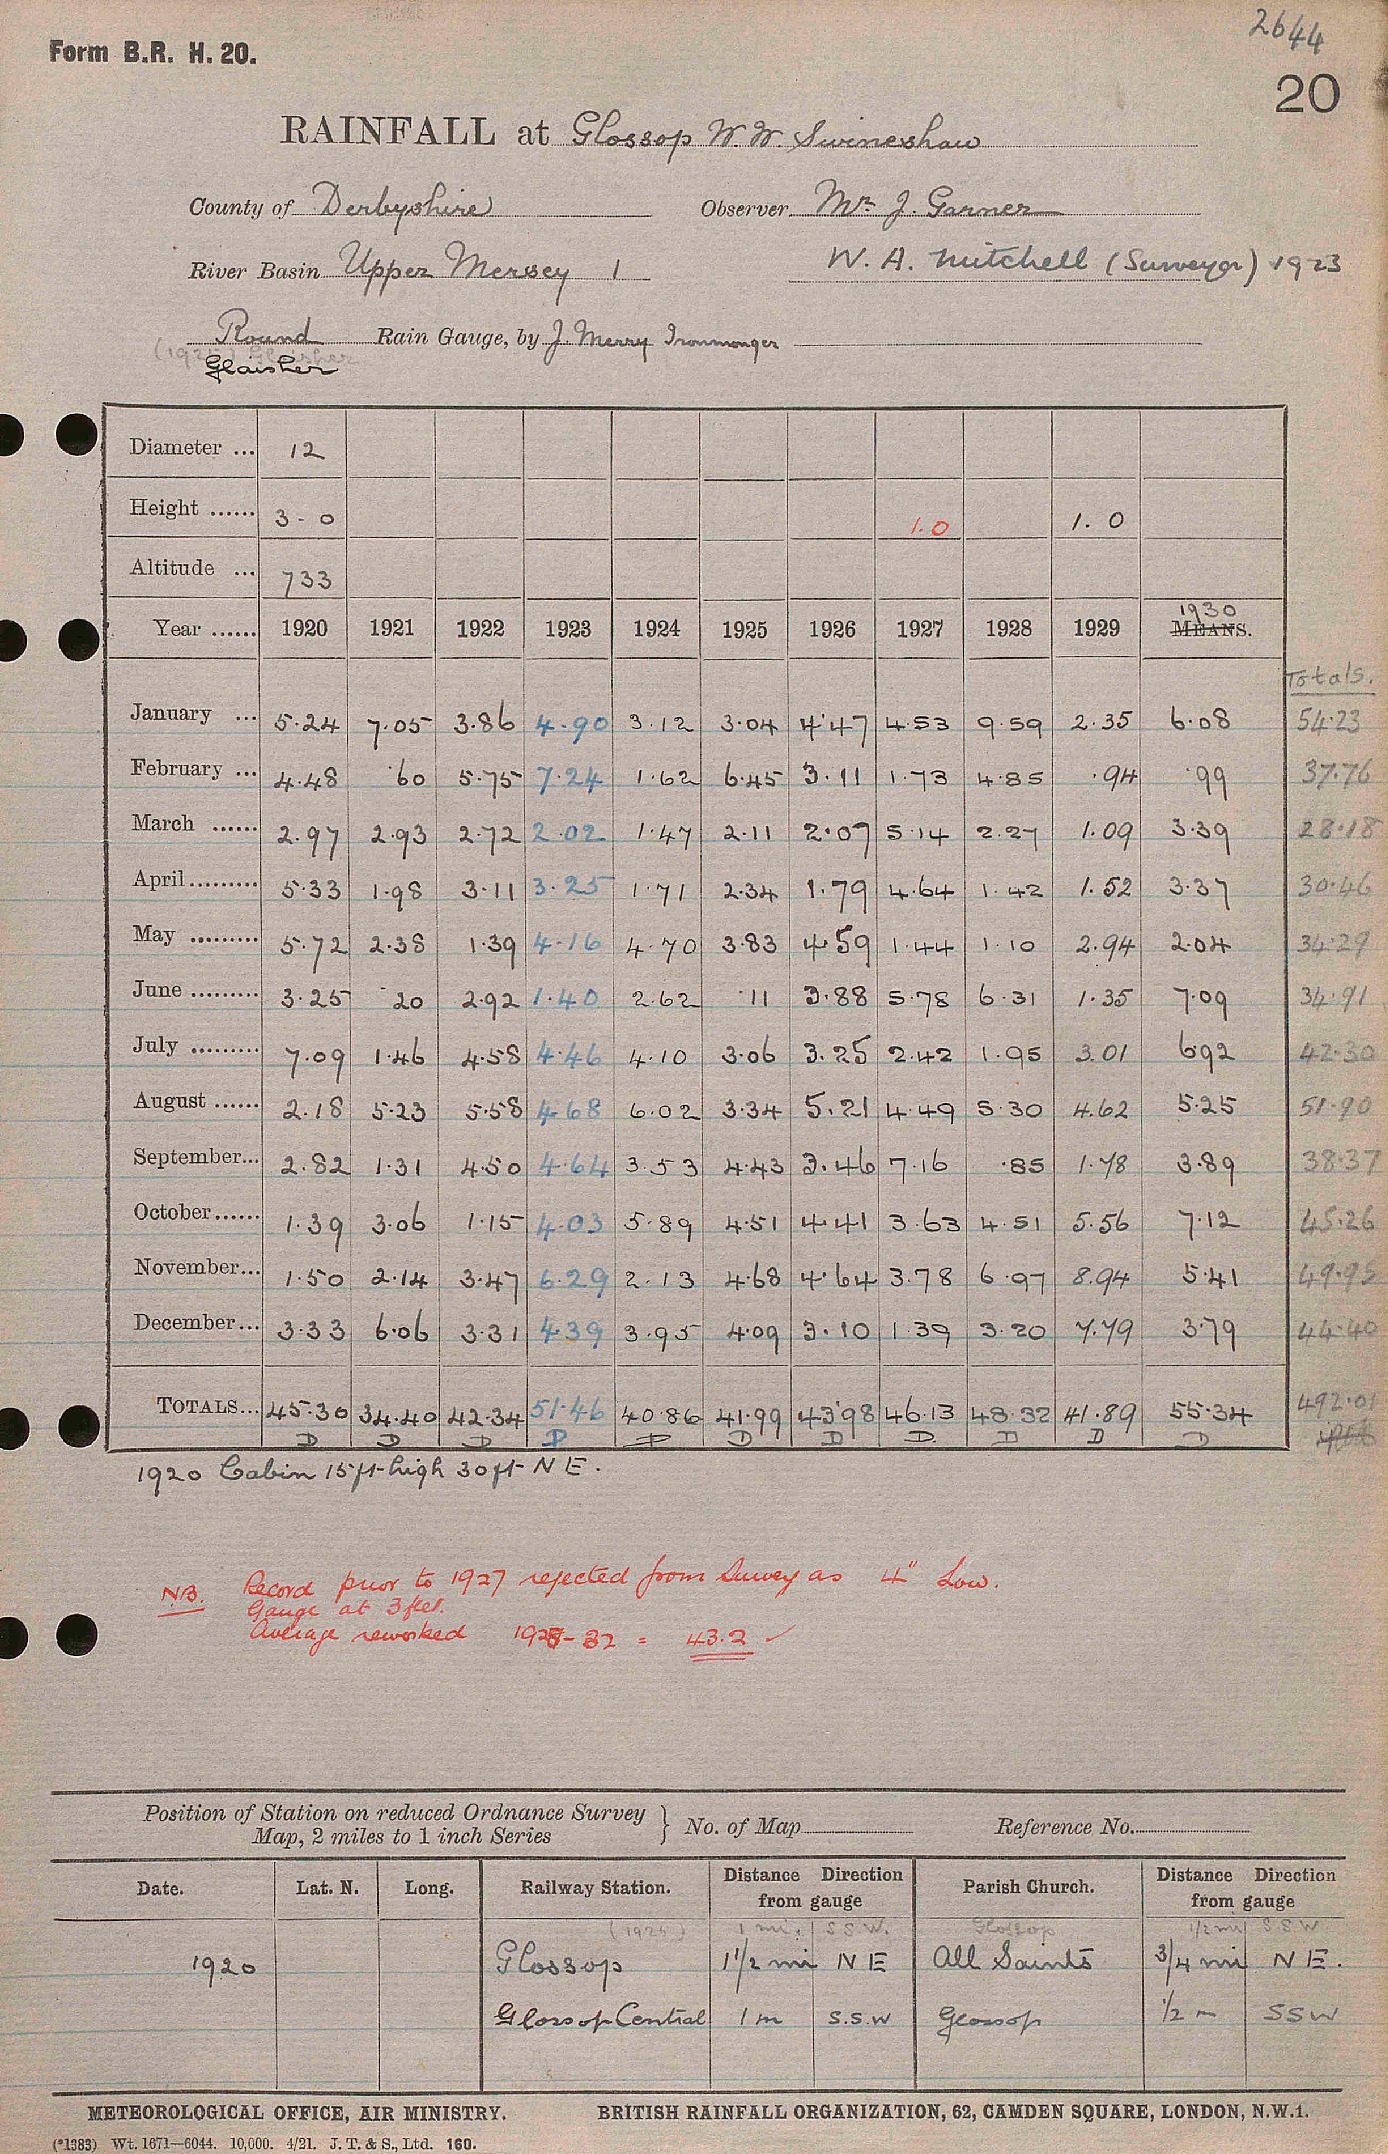 2644
Form B.R. H. 20.
20
RAINFALL at Glossop W.W. Swineshaw
County of Derbyshire Observer Mr. J. Garner
River Basin Upper Mersey 1 W. A. Mitchell (Surveyor) 1923
Round Rain Gauge, by J. Merry Ironmonger
Glaisher
Diameter ... 12
Height ...... 3 - 0 1. 0 1. 0
Altitude ... 733
1930
Year ...... 1920 1921 1922 1923 1924 1925 1926 1927 1928 1929 MEANS.
Totals.
January ... 5.24 7.05 3.86 4.90 3.12 3.04 4.47 4.53 9.59 2.35 6.08 54.23
February ... 4.48 .60 5.75 7.24 1.62 6.45 3.11 1.73 4.85 .94 .99 37.76
March ...... 2.97 2.93 2.72 2.02 1.47 2.11 2.07 5.14 2.27 1.09 3.39 28.18
April......... 5.33 1.98 3.11 3.25 1.71 2.34 1.79 4.64 1.42 1.52 3.37 30.46
May ......... 5.72 2.38 1.39 4.16 4.70 3.83 4.59 1.44 1.10 2.94 2.04 34.29
June ......... 3.25 .20 2.92 1.40 2.62 .11 3.88 5.78 6.31 1.35 7.09 34.91
July ......... 7.09 1.46 4.58 4.46 4.10 3.06 3.25 2.42 1.95 3.01 6.92 42.30
August ...... 2.18 5.23 5.58 4.68 6.02 3.34 5.21 4.49 5.30 4.62 5.25 51.90
September... 2.82 1.31 4.50 4.64 3.53 4.43 3.46 7.16 .85 1.78 3.89 38.37
October...... 1.39 3.06 1.15 4.03 5.89 4.51 4.41 3.63 4.51 5.56 7.12 45.26
November... 1.50 2.14 3.47 6.29 2.13 4.68 4.64 3.78 6.97 8.94 5.41 49.95
December... 3.33 6.06 3.31 4.39 3.95 4.09 3.10 1.39 3.20 7.79 3.79 44.40
TOTALS... 45.30 34.40 42.34 51.46 40.86 41.99 43.98 46.13 48.32 41.89 55.34 492.01
D D D D D D D D D D D
1920 Cabin 15 ft high 30 ft N E.
N.B. Record prior to 1927 rejected from Survey as 4" Low.
Gauge at 3 feet.
Average reworked 1928-32 = 43.2 ✓
Position of Station on reduced Ordnance Survey
Map, 2 miles to 1 inch Series } No. of Map Reference No.
Date. Lat. N. Long. Railway Station. Distance from gauge Direction Parish Church. Distance from gauge Direction
(1925) 1 mi. S S W. Glossop 1/2 mi S S W
1920 Glossop 1 1/2 mi N E All Saints 3/4 mi N E.
Glossop Central 1 m S.S.W Glossop 1/2 m SSW
METEOROLOGICAL OFFICE, AIR MINISTRY. BRITISH RAINFALL ORGANIZATION, 62, CAMDEN SQUARE, LONDON, N.W.1.
(*1383) Wt. 1671—6044. 10,000. 4/21. J. T. & S., Ltd. 160.